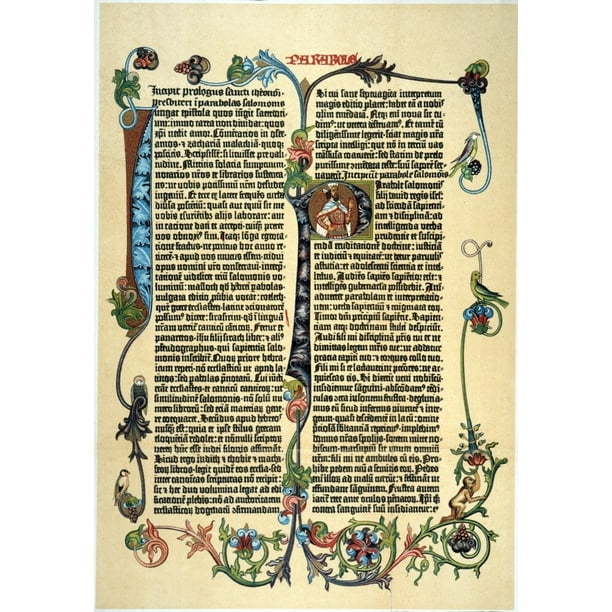 PARABOLE
Incipit prologus sancti iheronimi
presbiteri i parabolas salomonis
Iungat epistola quos iūgit sacerdoti-
um: immo carta non dividat: quos
xp̄i nectit amor. Cōmētarios in osee-
amos et zachariā malachiā quoq;
poscitis. Scripsissē: si licuisset pre vali-
tudine. Mittitis solacia sumptuum-
notarios nr̄os et librarios sustenta-
tis: ut vobis potissimū nr̄m desudet
ingeniū. Et ecce ex latere frequēs turba
diversa poscentiū: quasi aut equū sit me
vobis esurientibus aliis laborare: aut
in ratione dati et accepti-cuiq; preter
vos obnoxius sim. Itaq; lōga egrota-
tione fractus-ne penitus hoc anno re-
ticerē et apud vos mutus essem-tridui
opus nomini vr̄o consecravi-interpre-
tationē videlicet triū salomonis vo-
luminū: masloth qd̄ hebrei parabolas-
vulgata editio pverbia vocat: coeleth-
que grece ecclesiasten-latine cōcionatorē
possum9 dicere: sirasirim-qd̄ i linguā
nr̄am vertit̄ canticū cāticorū. Fertur et
panaretos-ihu filii sirach liber: et ali9
pseudographus-qui sapientia salo-
monis inscribit̄. Quorū priorē hebra-
icum reperi-nō ecclesiasticū ut apud la-
tinos: sed pabolas p̄notatū. Cui iūcti
erant ecclesiastes et canticū canticorū: ut
similitudinē salomonis-nō solū nu-
mero librorū: sed etiā materiarū gene-
re coequaret. Secūdus apud hebreos
nusq; est: quia et ipse stilus grecam
eloquētiā redolet: et nōnulli scriptorū
veterū hūc esse iudei filonis affirmāt.
Sicud ergo iudith et thobie et macha-
beorū libros-legit quidē eos ecclesia-sed
inter canonicas scripturas nō recipit:
sic et hec duo volumina legat ad edi-
ficationē plebis: nō ad auctoritatem
ecclesiasticorū dogmatū cōfirmandam
Si cui sane septuaginta interpretum
magis editio placet: habet eā a nobis
olim emēdatā. Neq; eni nova sic cu-
dim9: ut vetera destruam9. Et tamē cū
diligētissime legerit-sciat magis nr̄a
scripta intelligi: que nō in terciū vas
trāsfusa coacuerīt: sed statim de prelo
purissime cōmēdata teste: suū saporē ser-
vaverīt. Incipiunt parabole salomonis
Parabole salomonis
filii david regis isrl̄:
ad sciendā sapienti-
am et disciplinā: ad
intelligenda verba
prudentie et suscipi-
endā eruditationē doctrine: iusticiā
et iudiciū et equitatē: ut detur parvulis
astutia: et adolescenti scientia et intel-
lectus. Audiēs sapiēs sapiētior erit: et
intelligēs gubernacla possidebit. Ani-
advertet parabolam et interpretatio-
nem: verba sapientiū et enigmata eorū.
Timor dn̄i principiū sapiētie. Sapien-
tiam atq; doctrinam stulti despiciūt.
Audi fili mi disciplinā pr̄is tui et ne
dimittas legem mr̄is tue: ut addatur
gracia capiti tuo: et torques collo tuo.
Fili mi si te lactaverint pccōres: ne ac-
quiescas eis. Si dixerīt veni nobiscū-
insidiemur sanguini-abscōdam9 ten-
diculas cōtra insontem frustra-degluti-
amus eū sicud infernus viventē-et inte-
grum-quasi descēdentē in lacū: omnē
preciosā substātiā reperiem9-implebim9
domus nr̄as spoliis-sortem mitte nobis-
cum-marsupiū sit unum omniū nr̄m:
fili mi ne ambules cū eis. Prohibe
pedem tuū a semitis eorū. Pedes eni
illorū ad malū currūt: et festināt ut
effundant sanguinem. Frustra autem
iacit̄ rete ante oculos pēnatorū. Ipi q̄
contra sanguinē suū insidiantur: et